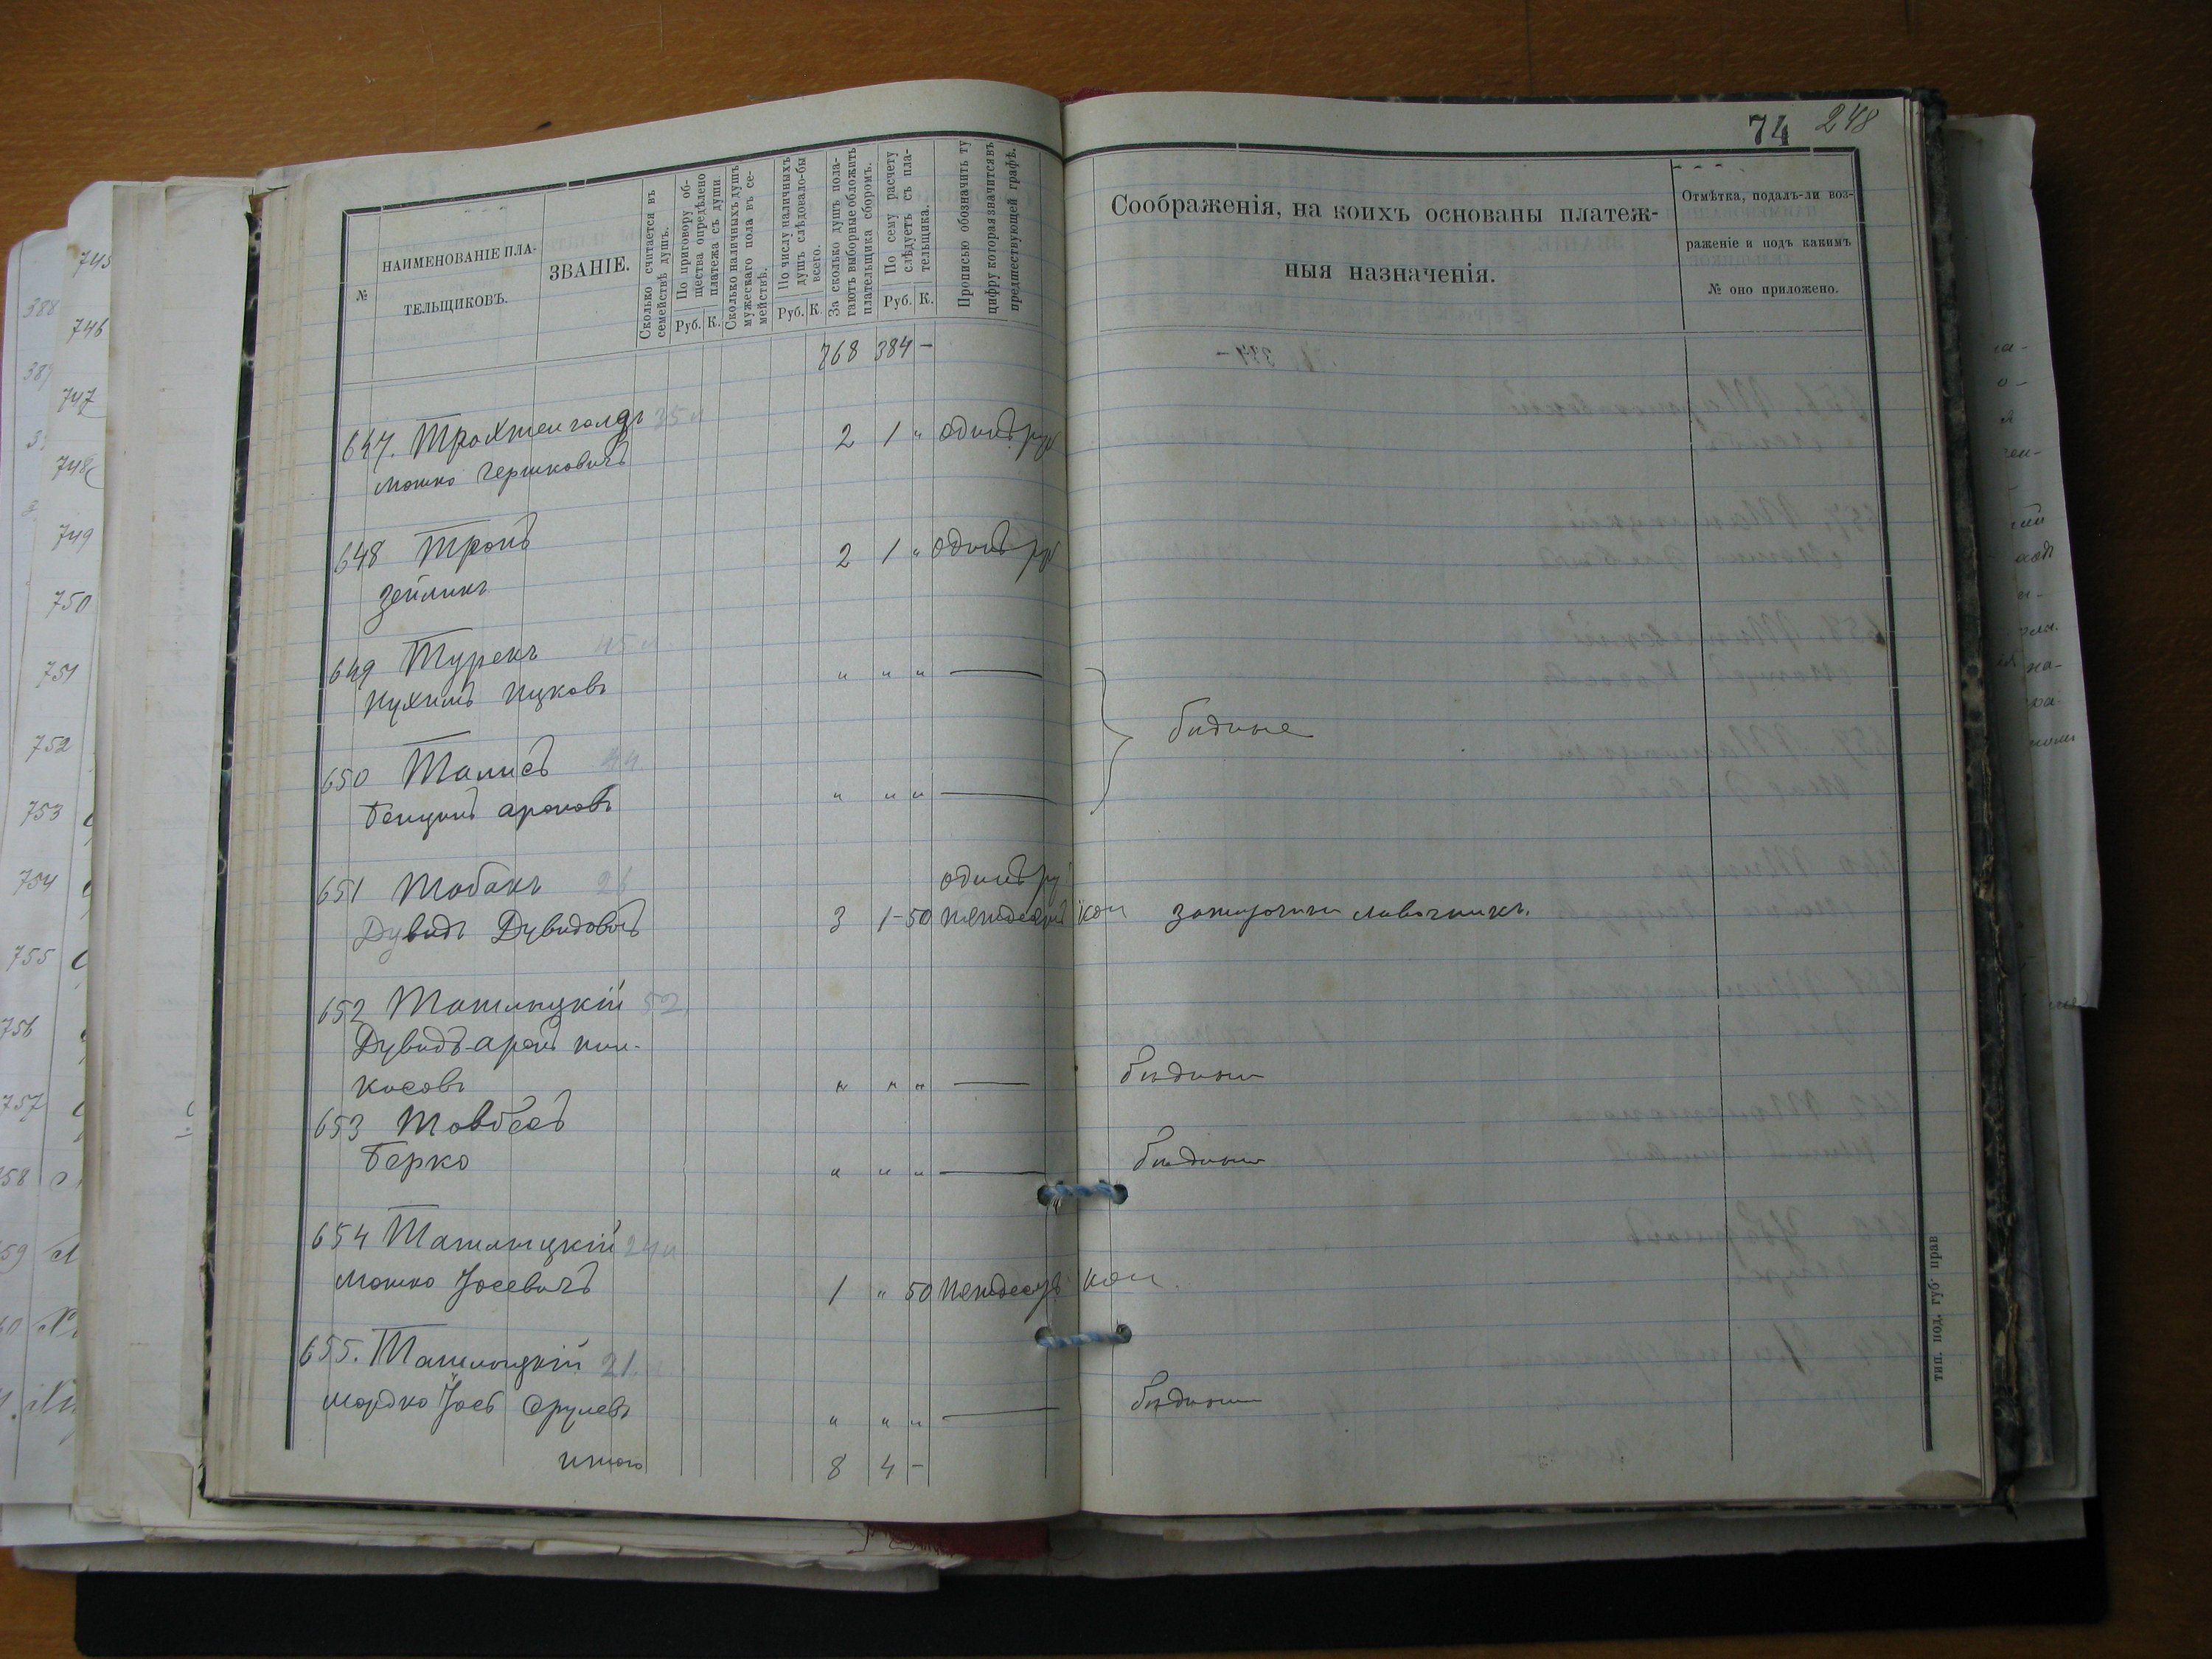 74 248
№
НАИМЕНОВАНІЕ ПЛА-
ТЕЛЬЩИКОВЪ.
ЗВАНІЕ.
Сколько считается въ
семействѣ душъ.
По приговору об-
щества опредѣлено
платежа съ души.
Руб. К.
Сколько наличныхъ душъ
мужескаго пола въ се-
мействѣ.
По числу наличныхъ
душъ слѣдовало-бы
всего.
Руб. К.
За сколько душъ пола-
гаютъ выборные обложить
плательщика сборомъ.
По сему расчету
слѣдуетъ съ пла-
тельщика.
Руб. К.
Прописью обозначить ту
цифру которая значится въ
предшествующей графѣ.
Соображенія, на коихъ основаны платеж-
ныя назначенія.
Отмѣтка, подалъ-ли воз-
раженіе и подъ какимъ
№ оно приложено.
768 384 -
647. Трахтенголдъ 35 л
Мошко Гершковичъ
2 1 " одинъ руб
648 Тропъ
Зейликъ
2 1 " одинъ руб
649 Турекъ 45 л.
Нухимъ Ицковъ
" " " —
650 Талисъ 44
Бенционъ Ароновъ
" " " —
бѣдные
651 Табакъ 26
Дувидъ Дувидовъ
одинъ ру
3 1-50 пятьдесятъ коп
зажиточный лавочникъ.
652 Ташлицкій 52
Дувидъ-Аронъ Пин-
кусовъ
" " " — бѣдный
653 Товбесъ
Берко
" " " — бѣдный
654 Ташлицкій 24 л
Мошко Іосевичъ
1 " 50 пятьдесятъ коп.
655. Ташлицкій 21.
Мордко Іось Срулевъ
" " " — бѣдный
итого 8 4 -
тип. под. губ. прав
745
746
747
748
749
750
751
752
753
754
755
756
757